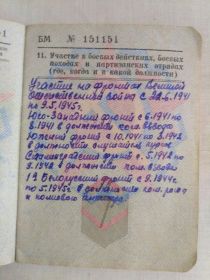 БМ № 151151
11. Участие в боевых действиях, боевых
походах и партизанских отрядах
(где, когда и в какой должности)
Участие на фронтах Великой
Отечественной войны с 22.6.1941
по 9.5.1945г.
Юго-Западный фронт с 6-1941 по
8.1941 в должности ком. взвода
Южный фронт с 10.1941 по 3.1942
в должности слушателя курсов
Сталинградский фронт с 5.1942 по
8.1942 в должности ком. взвода
1й Белорусский фронт с 9.1944г.
по 5.1945г. в должности ком. роты
и